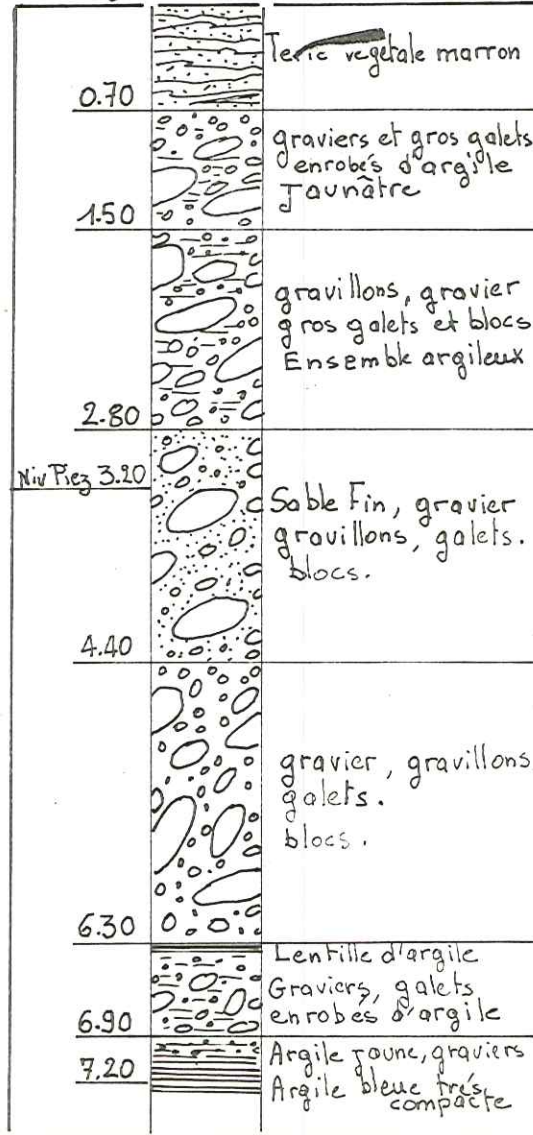 Terre vegetale marron
0.70
graviers et gros galets
enrobés d'argile
Jaunâtre
1.50
gravillons, gravier
gros galets et blocs
Ensemble argileux
2.80
Niv Piez 3.20
Sable Fin, gravier
gravillons, galets.
blocs.
4.40
gravier, gravillons
galets.
blocs.
6.30
Lentille d'argile
Graviers, galets
enrobés d'argile
6.90
Argile jaune, graviers
7.20
Argile bleue très
compacte